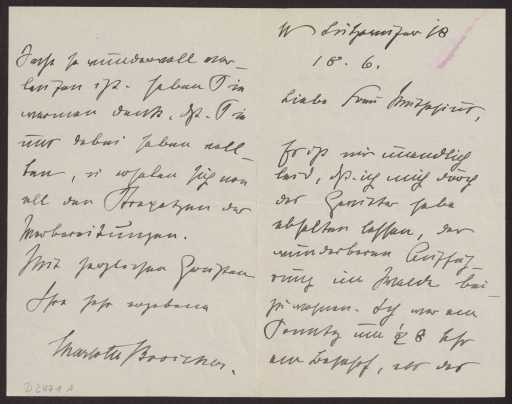 W Lützowufer 18
18. 6.
Liebe Frau Muthesius,
Es ist mir unendlich
leid, dß. ich mich durch
das Gewitter habe
abhalten lassen, der
wunderbaren Auffüh-
rung im Walde bei-
zuwohnen. Ich war am
Sonntag um 8 Uhr
am Bahnhof, als das
Fest so wundervoll ver-
laufen ist. Haben Sie
warmen Dank, dß. Sie
uns dabei haben woll-
ten, u erholen sich von
all den Strapazen der
Vorbereitungen.
Mit herzlichen Grüßen
Ihre sehr ergebene
Charlotte Broicher.
D 2471 A